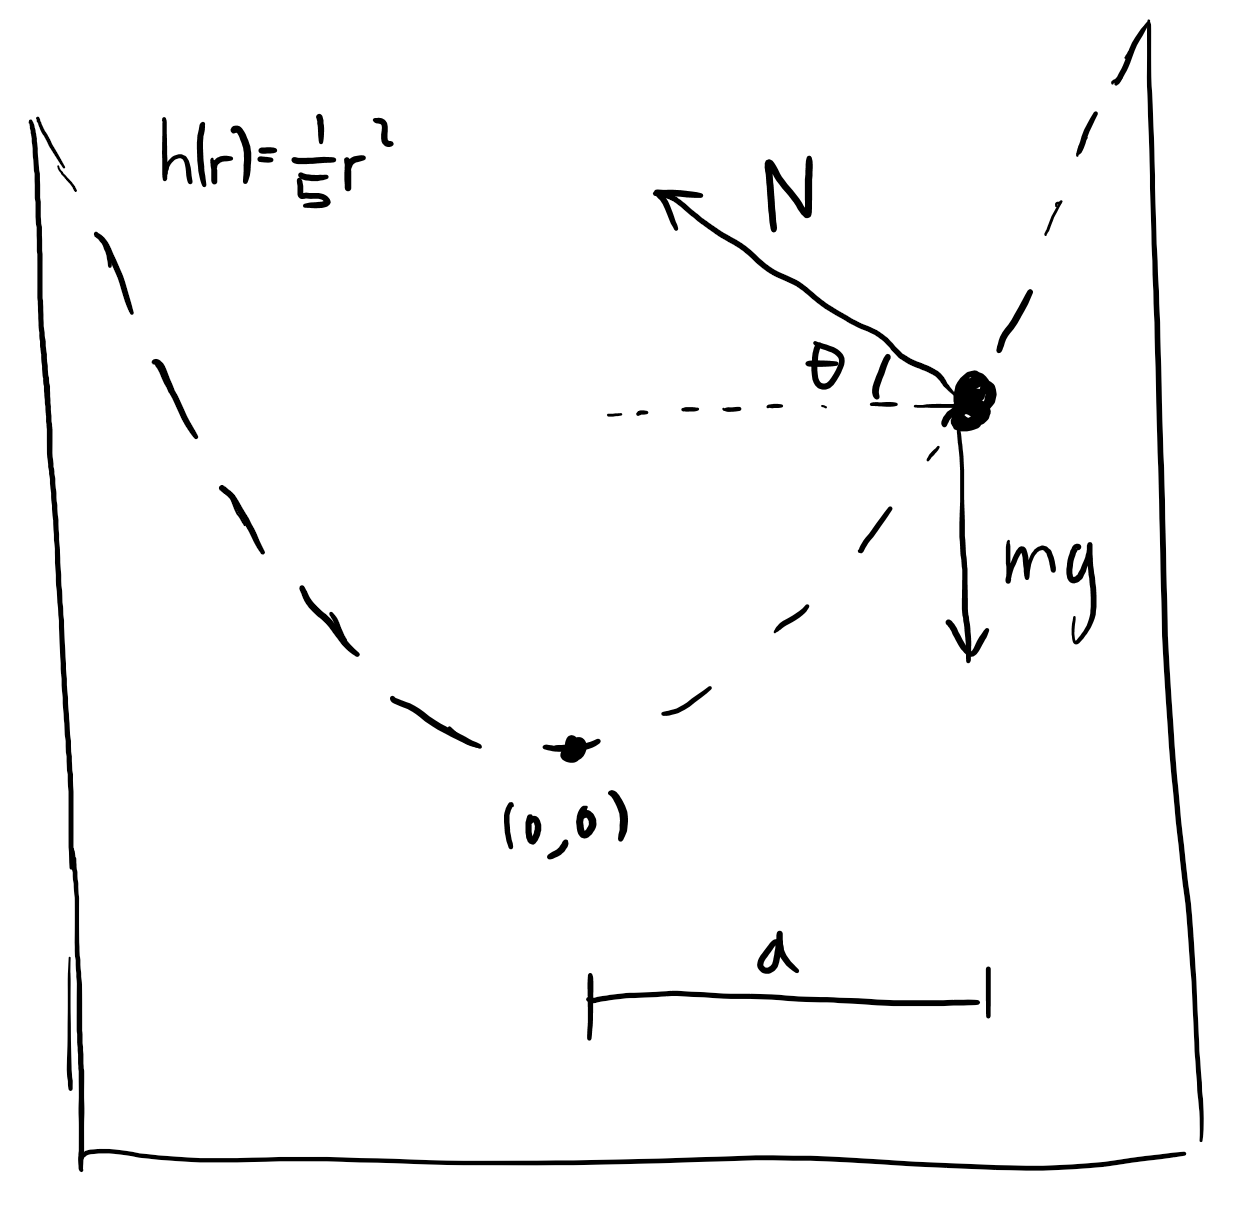 h(r)=1/5 r²
N
θ
mg
(0,0)
a